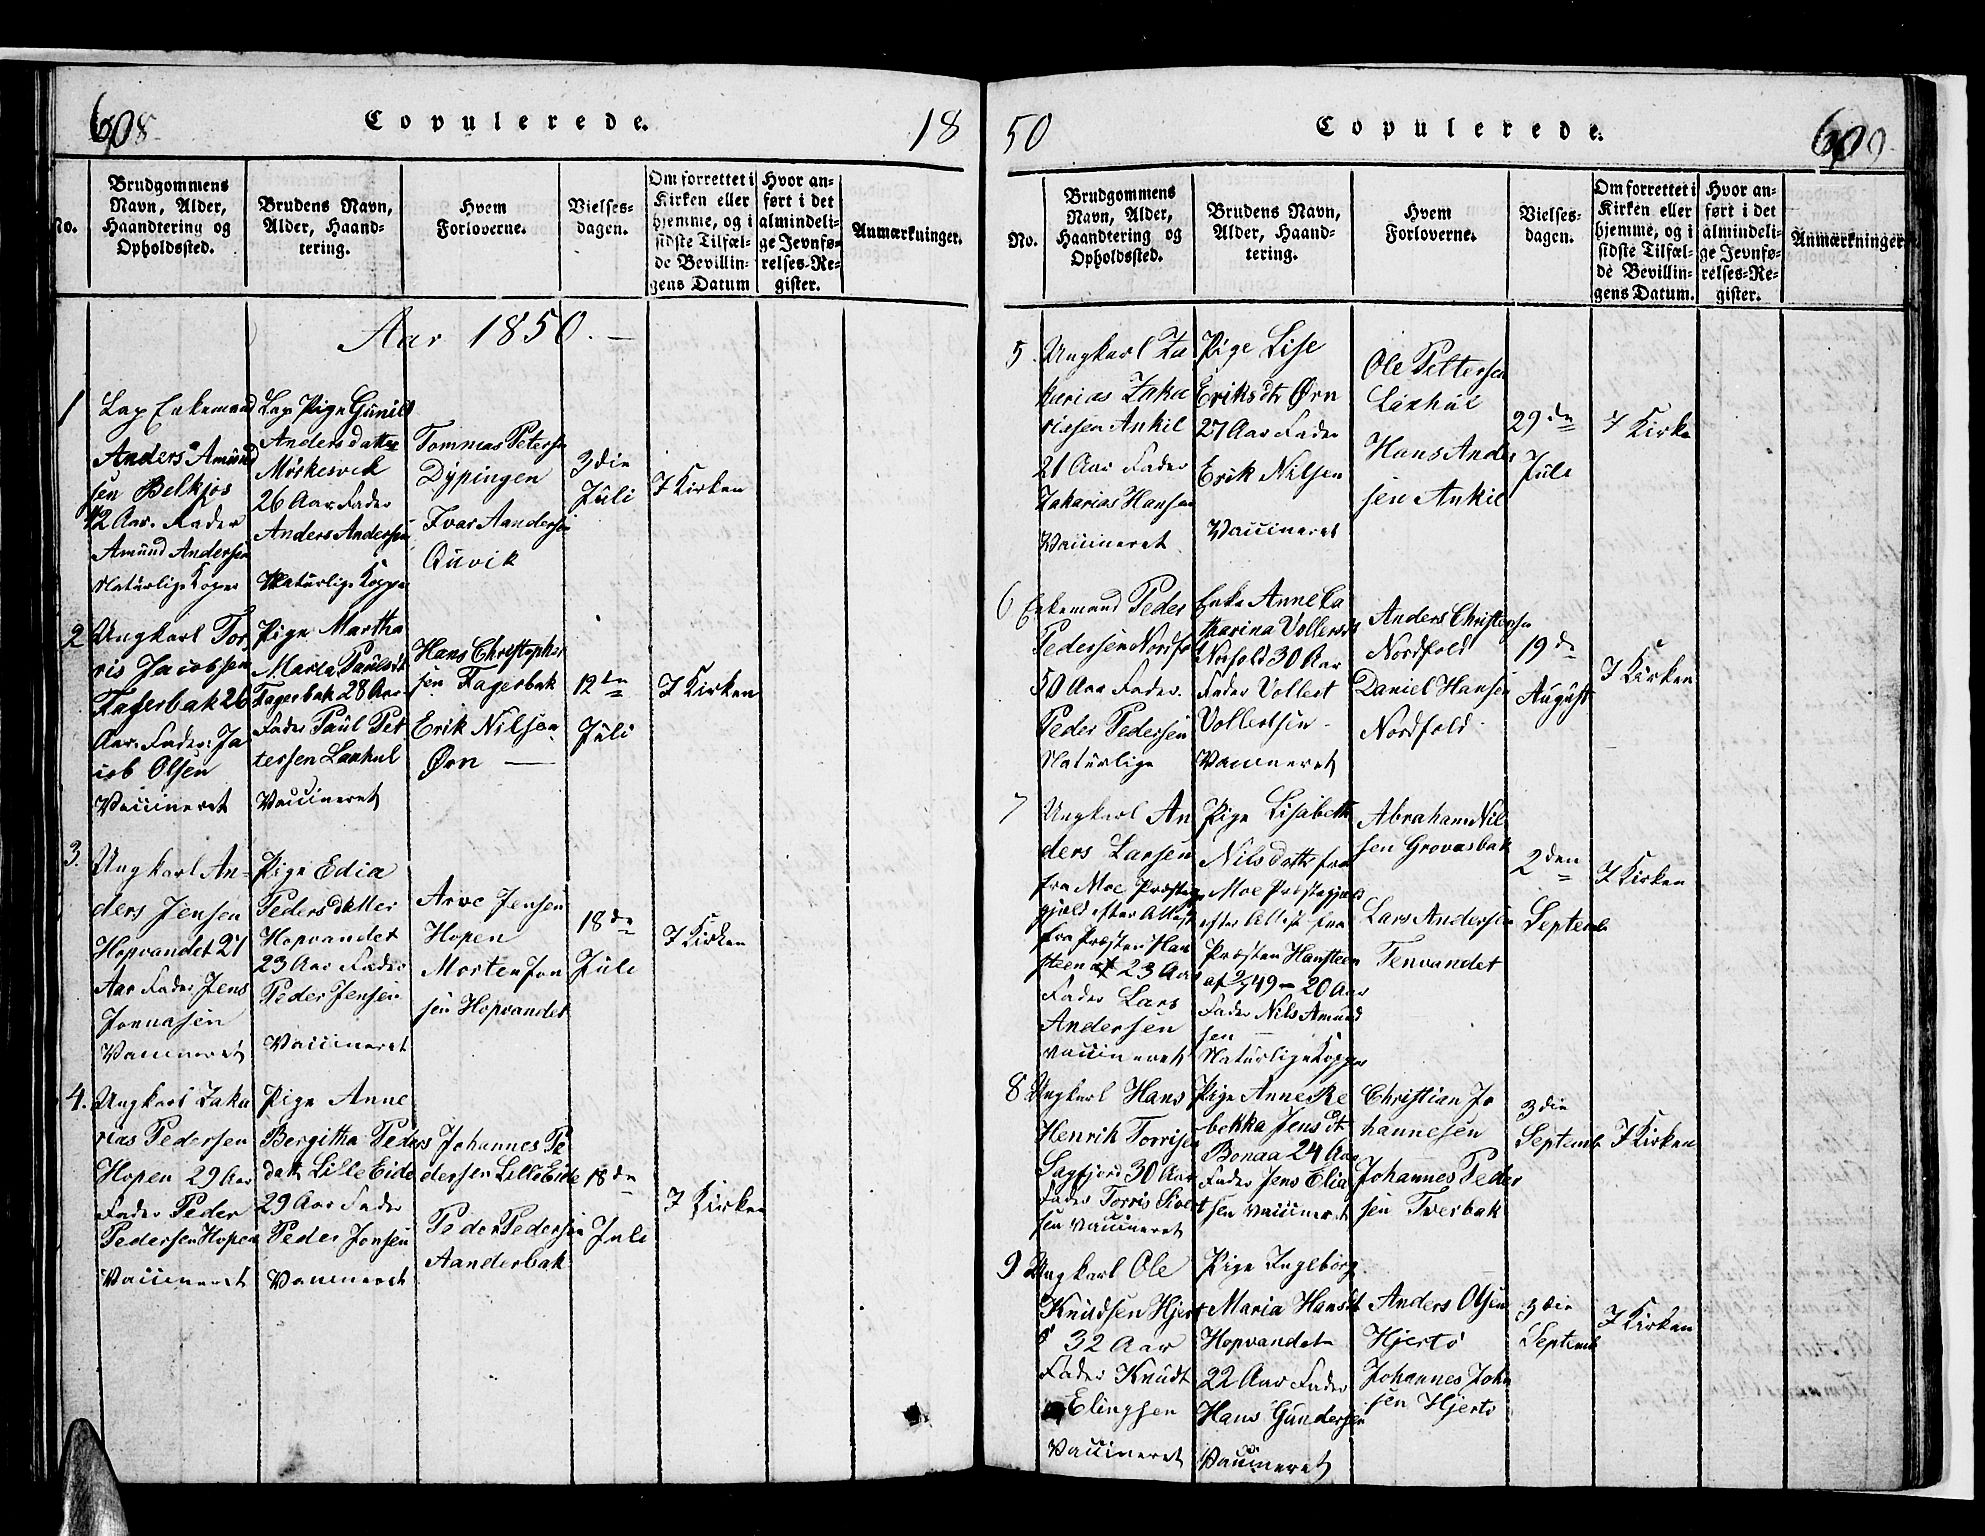 608.
Copulerede.
18
No.
Brudgommens
Navn, Alder,
Haandtering og
Opholdssted.
Brudens Navn,
Alder, Haand-
tering.
Hvem
Forloverne.
Vielses-
dagen.
Om forrettet i
Kirken eller
hjemme, og i
sidste Tilfæl-
de Bevillin-
gens Datum
Hvor an-
ført i det
almindeli-
ge Jevnfø-
relses-Re-
gister.
Anmærkninger.
Aar 1850. —
1
Lap Enkemand
Anders Amund
sen Belkjos
42 Aar. Fader
Amund Andersen
Naturlige Koper
Lap Pige Gunild
Andersdatter
Mørkesvik
26 Aar Fader
Anders Andersen
Naturlige Kopper
Tommas Petersen
Dypingen
Ivar Aandersen
Quvik
3die
Juli
I Kirken
2
Ungkarl Tor
ris Jacobsen
Fagerbak 26
Aar. Fader: Ja
cob Olsen
Vaccineret
Pige Martha
Maria Paulsdt
Fagerbak 28 Aar
Fader Paul Pet
tersen Laxhul
Vaccineret
Hans Christopher
sen Fagerbak
Erik Nilsen
Ørn —
12te
Juli
I Kirken
3.
Ungkarl An-
ders Jensen
Hopvandet 27
Aar Fader Jens
Jonnasen
Vaccineret
Pige Edia
Pedersdatter
Hopvandet
23 Aar Fader
Peder Jensen
Vaccineret
Arve Jensen
Hopen
Morten Jon
sen Hopvandet
18de
Juli
I Kirken
4.
Ungkarl Zaka
rias Pedersen
Hopen 29 Aar
Fader Peder
Pedersen Hopen
Vaccineret
Pige Anne
Bergitha Peders
datt Lille Eide
29 Aar Fader
Peder Jonsen
Vaccineret
Johannes Pe
dersen Lille Eide
Peder Pedersen
Aanderbak
18de
Juli
I Kirken
50
Copulerede.
609.
No.
Brudgommens
Navn, Alder,
Haandtering og
Opholdssted.
Brudens Navn,
Alder, Haand-
tering.
Hvem
Forloverne.
Vielses-
dagen.
Om forrettet i
Kirken eller
hjemme, og i
sidste Tilfæl-
de Bevillin-
gens Datum.
Hvor an-
ført i det
almindeli-
ge Jevnfø-
relses-Re-
gister.
Anmærkninger.
5
Ungkarl Za
karias Zaka
rissen Ankil
21 Aar Fader
Zakarias Hansen
Vaccineret
Pige Lise
Eriksdtr Ørn
27 Aar Fader
Erik Nilsen
Vaccineret
Ole Pettersen
Laxhul
Hans Ander
sen Ankil
29de
Juli
I Kirke
6
Enkemand Peder
Pedersen Nordfo
50 Aar Fader.
Peder Pedersen
Naturlige
Enke Anne Ca
tharina Vollersdt
Norfold 30 Aar
Fader Vollert
Vollertsen
Vaccineret
Anders Christensen
Nordfold
Daniel Hansen
Nordfold
19de
August
I Kirken
7
Ungkarl An
ders Larsen
fra Moe Præste
gjeld efter Attest
fra Præsten Han
steen af 23 Aar
Fader Lars
Andersen
Vaccineret
Pige Lisabeth
Nilsdatter fra
Moe Præstegjeld
efter Attest fra
Præsten Hansteen
af 2/7 49 — 20 Aar
Fader Nils Amund
sen —
Naturlige Kopper
Abraham Nil
sen Grovasbak
Lars Andersen
Tenvandet
2den
Septemb
I Kirken
8
Ungkarl Hans
Henrik Torrisen
Sagfjord 30 Aar
Fader Torris Sivert
sen Vaccineret
Pige Anne Re
bekka Jensdt
Bonaa 24 Aar
Fader Jens Elia
sen Vaccineret
Christian Jo
hannesen
Johannes Peder
sen Tverbak
3die
Septemb
I Kirken
9
Ungkarl Ole
Knudsen Hjert
ø 32 Aar
Fader Knudt
Elingsen
Vaccineret
Pige Ingeborg
Maria Hansdt
Hopvandet
22 Aar Fader
Hans Gundersen
Vaccineret
Anders Olsen
Hjertø
Johannes John
sen Hjertø
3die
Septemb
I Kirken